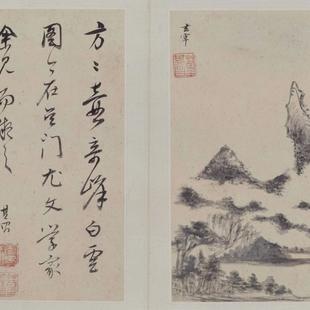 玄宰
方〻壺奇峰白雲
圖今在吳門尤文學家
余見而擬之
其昌